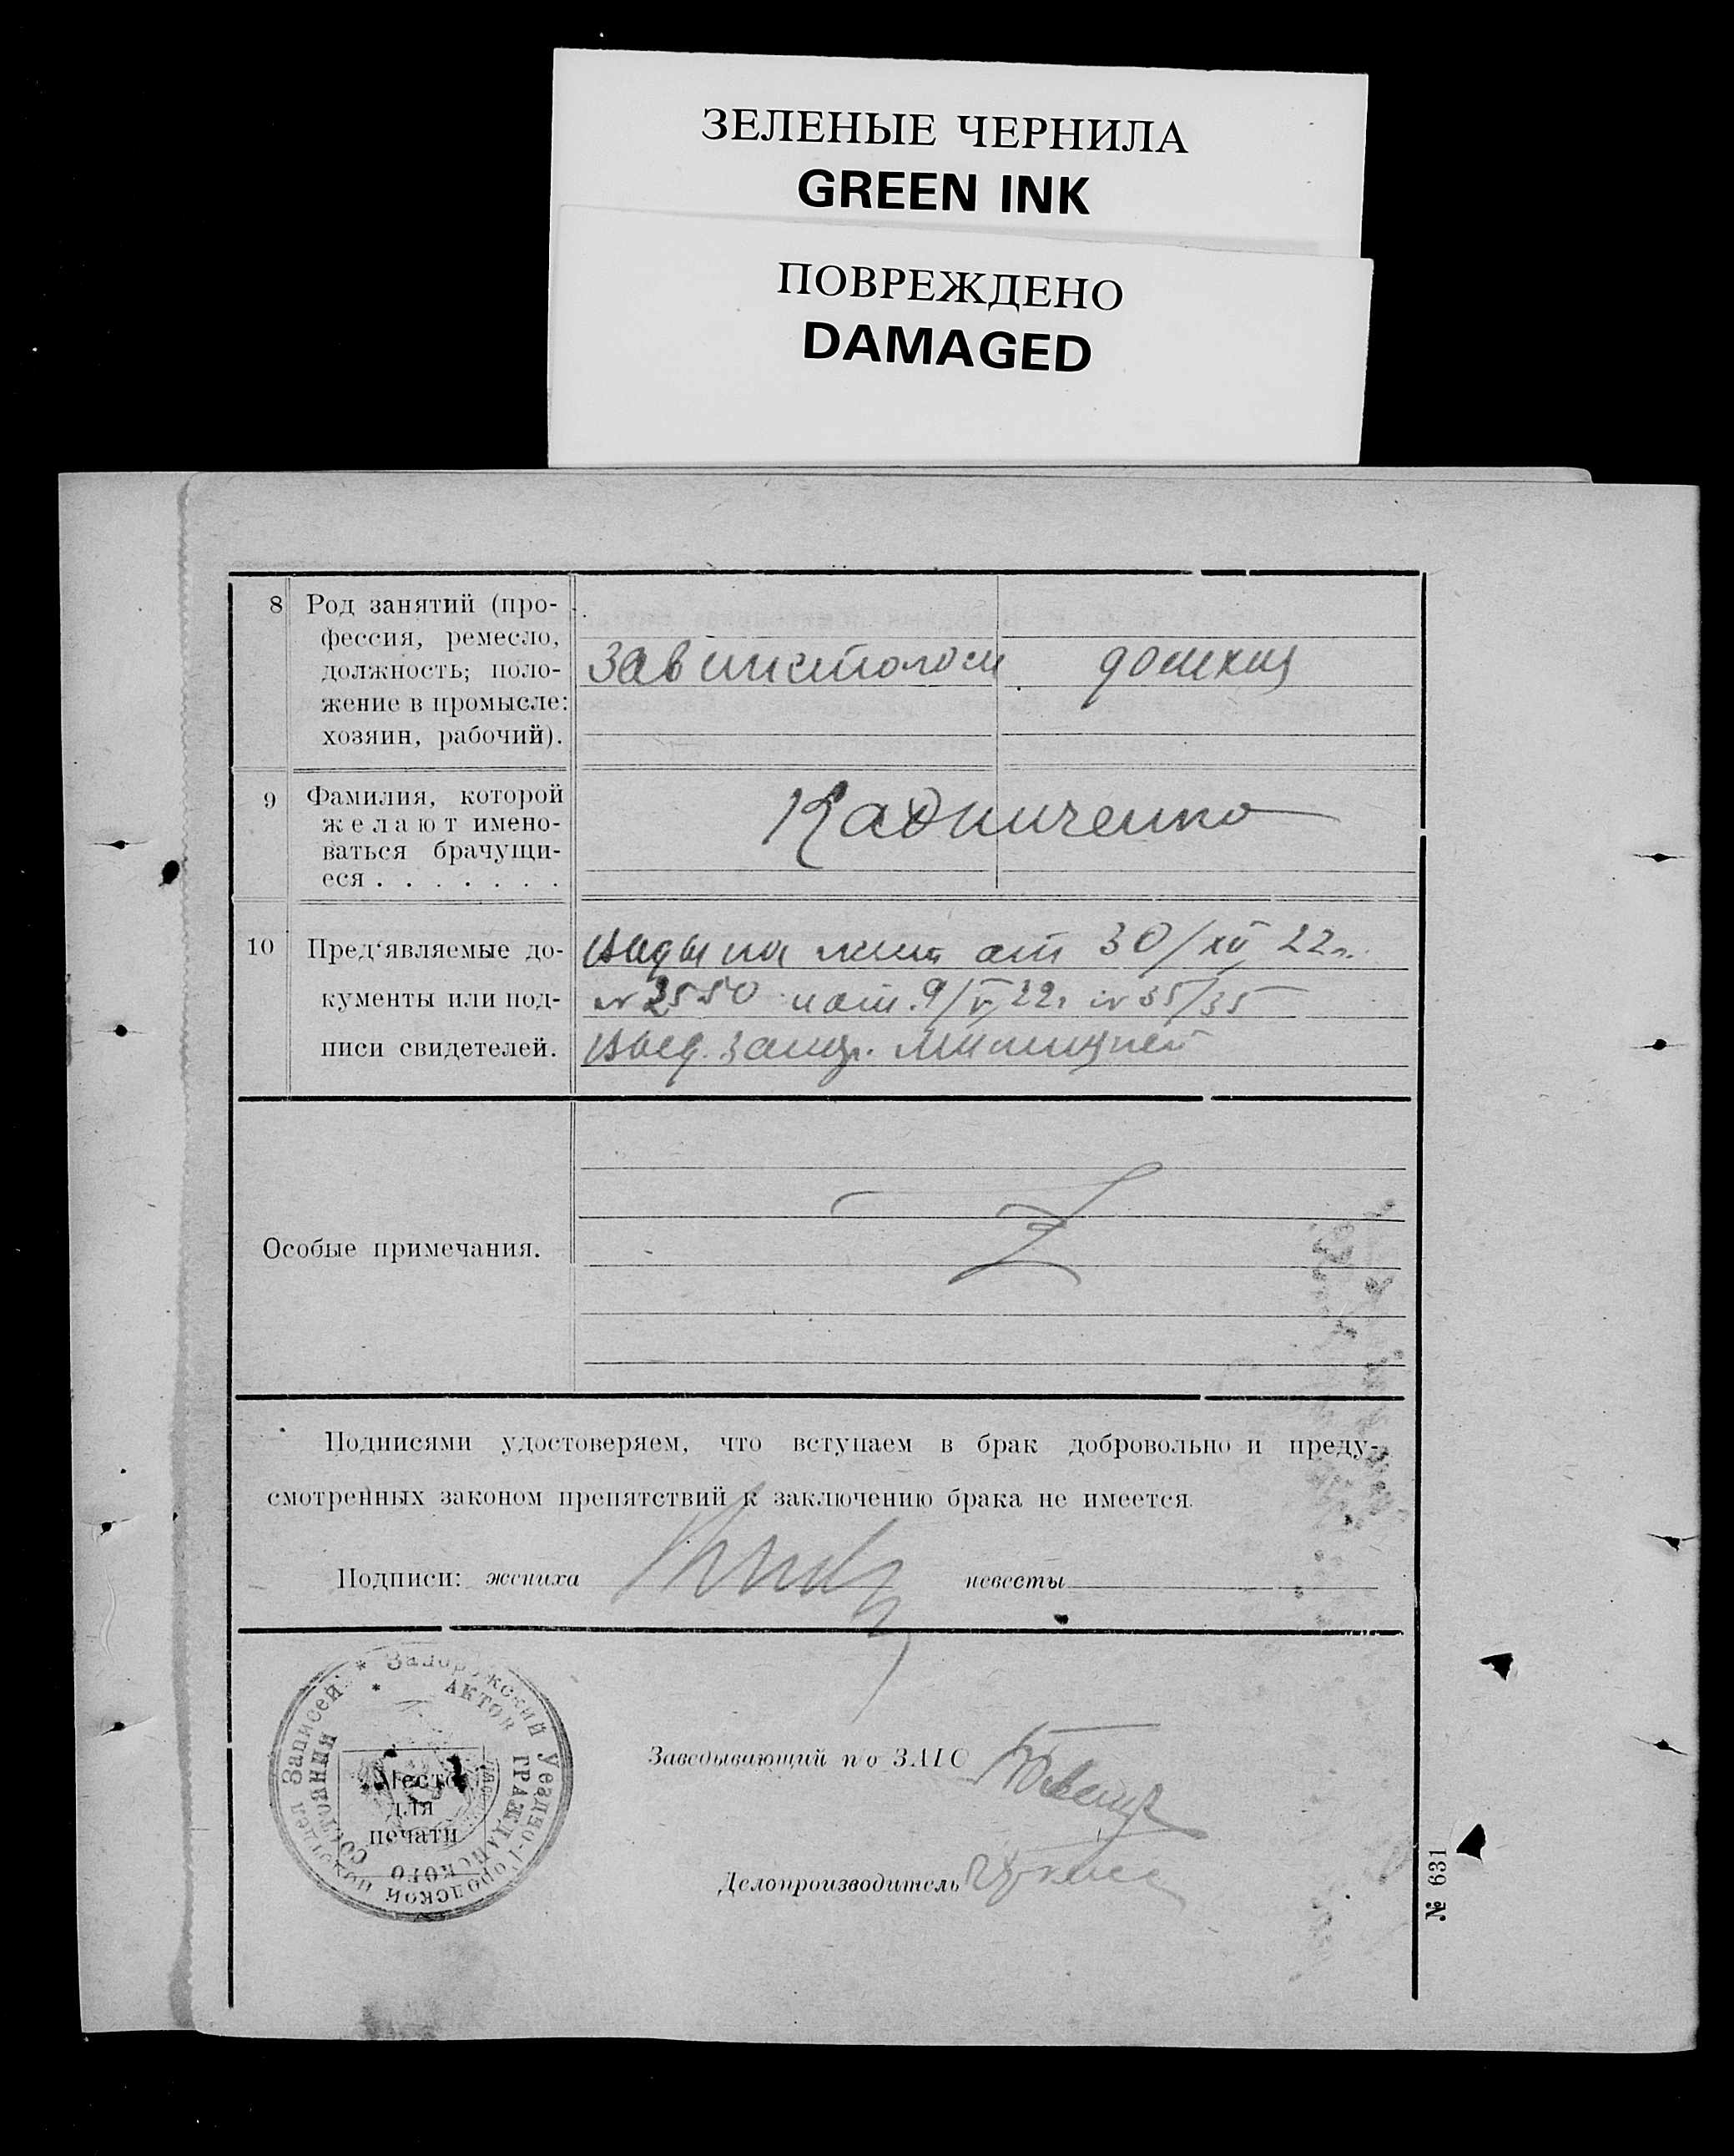 ЗЕЛЕНЫЕ ЧЕРНИЛА
GREEN INK
ПОВРЕЖДЕНО
DAMAGED
8 Род занятий (про-
фессия, ремесло,
должность; поло-
жение в промысле:
хозяин, рабочий).
зав домхоз
9 Фамилия, которой
желают имено-
ваться брачущи-
еся . . . . . . .
Кадниченко
10 Пред‘являемые до-
кументы или под-
писи свидетелей.
виды на жит от 30/XII 22 г.
№ 2550 и от 9/V 22 г № 35/35
выд. милицией
Особые примечания.
Подписями удостоверяем, что вступаем в брак добровольно и преду-
смотренных законом препятствий к заключению брака не имеется.
Подписи: жениха невесты
* Запорожский Уездно-Городской подотдел Записей
* АКТОВ ГРАЖДАНСКОГО СОСТОЯНИЯ
Место
для
печати
Заведывающий п/о ЗАГС
Делопроизводитель
№ 631